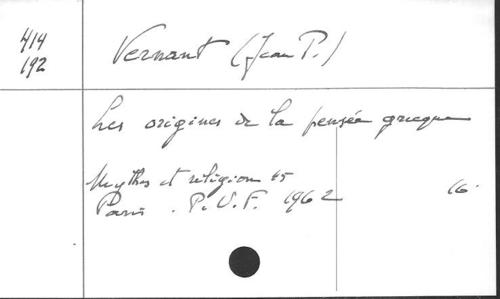 414
192
Vernant (Jean P.)
Les origines de la pensée grecque
Mythes et religion 45
Paris . P.U.F. 1962
16.